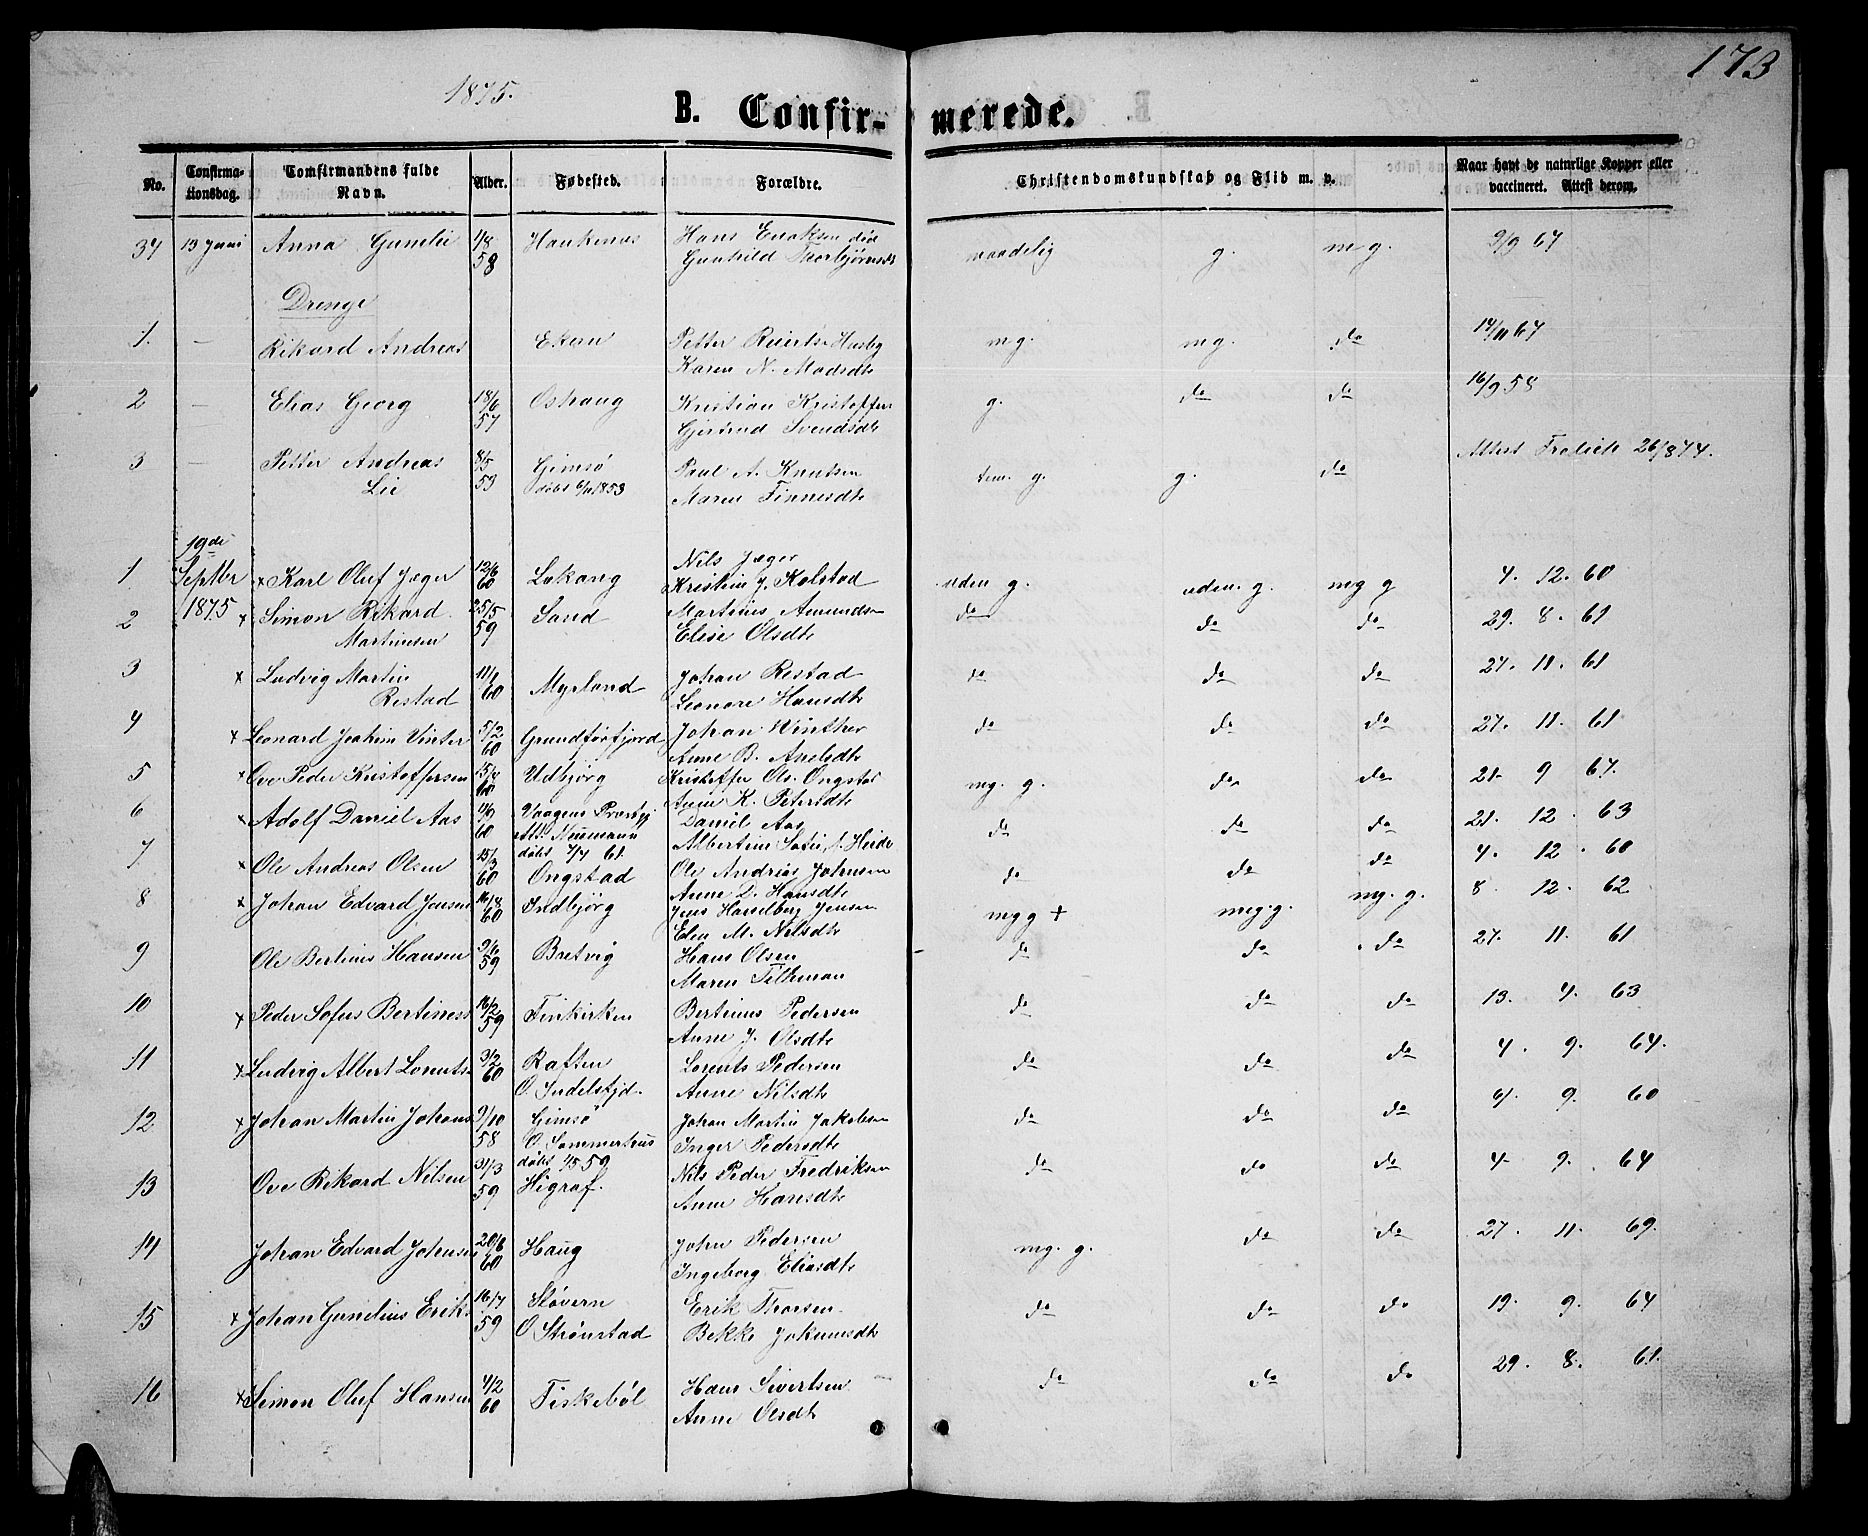 173
1875.
B. Confir- merede.
No. Confirma- tionsdag. Comfirmandens fulde Navn. Alder. Fødested. Forældre. Christendomskundskab og Flid m. v. Naar havt de naturlige Kopper eller vaccineret. Attest derom.
37 13 Juni Anna 4/8 58 Haukenes Hans died maadelig g. mg. 9/9 67
Gunhild Thorbjørnsdt
Drenge
1. — Rikard Andreas Petter Husby mg. mg. do 14/11 67
Karen N. Madsdt
2 — Elias Georg 18/6 57 Oshaug Kristian Kristoffers g. do do 16/9 58
Gjertrud Svendsdt
3 — Petter Andreas 8/5 53 Gimsø Paul A. Knutsen tem. g. g. do Attest 26/8 74.
Lie døbt 6/11 1853 Maren Finnesdt
19de
1 Septbr × Karl Oluf Jæger 12/6 60 Lekang Nils Jæger uden g. uden. g. mg g 4. 12. 60
Kristine J. Kolstad
2 1875 × Simon Rikard 25/5 59 Sand Martinus Amundsen do do do 29. 8. 61
Martinesen Elise Olsdt
3 × Ludvig Martin 60 Myrland Johan Restad do do do 27. 11. 61
Restad Leonore Hansdt
4 × Leonard Joakim Vinter 5/2 60 Grundførfjord Johan Winther do do do 27. 11. 61
Anne B.
5 × Ove Peder Kristoffersen 60 Udbjørg Kristoffer Ols. Ongstad mg. g. do do 21. 9 67.
Anne K. Petersdt
6 × Adolf Daniel Aas 60 Vaagens Præstgj. Daniel Aas do do do 21. 12. 63
Att. Neumann Albertine
døbt 7/7 61.
7 × Ole Andreas Olsen 15/3 60 Ongstad Ole Andreas Johnsen do do do 4. 12. 60
Anne L. Hansdt
8 × Johan Edvard Jensen 16/8 60 Indbjørg Jens Hasselberg Jensen mgg + meg.g. mg. g. 8 12. 62
Elen M. Nilsdt
9 Ole Bertinus Hansen 59 Bretvig Hans Olsen do do do 27. 11. 61
Maren Tilkman
10 × Peder Sofus Bertiness 16/2 59 Finkirken Bertinus Pedersen do do do 13. 4. 63
Anne J. Olsdt
11 × Ludvig Albert Lornts 3/2 60 Raften Lornts Pedersen do do do 4. 9. 64.
O. Indelsfjd. Anne Nilsdt
12 × Johan Martin Johans 9/10 58 Gimsø Johan Martin Jakobsen do do do 4. 9. 60
O. Sommerhus Inger Pedersdt
døbt 59
13 Ove Rikard Nilsen 31/3 59 Higraf. Nils Peder Fredriksen do do do 4. 9. 64
Anne Hansdt
14 Johan Edvard Johnsen 20/6 60 Haug John Pedersen mg. g. do do 27. 11. 69.
Ingeborg Eliasdt
15 × Johan Gunelius Eriks 16/7 59 Støvern Erik Thorsen do do do 19. 9. 64
O Strønstad Bekke Jokumsdt
16 × Simon Oluf Hansen 4/2 60 Fiskebøl Hans Sivertsen do do do 29. 8. 61.
Anne Olsdt